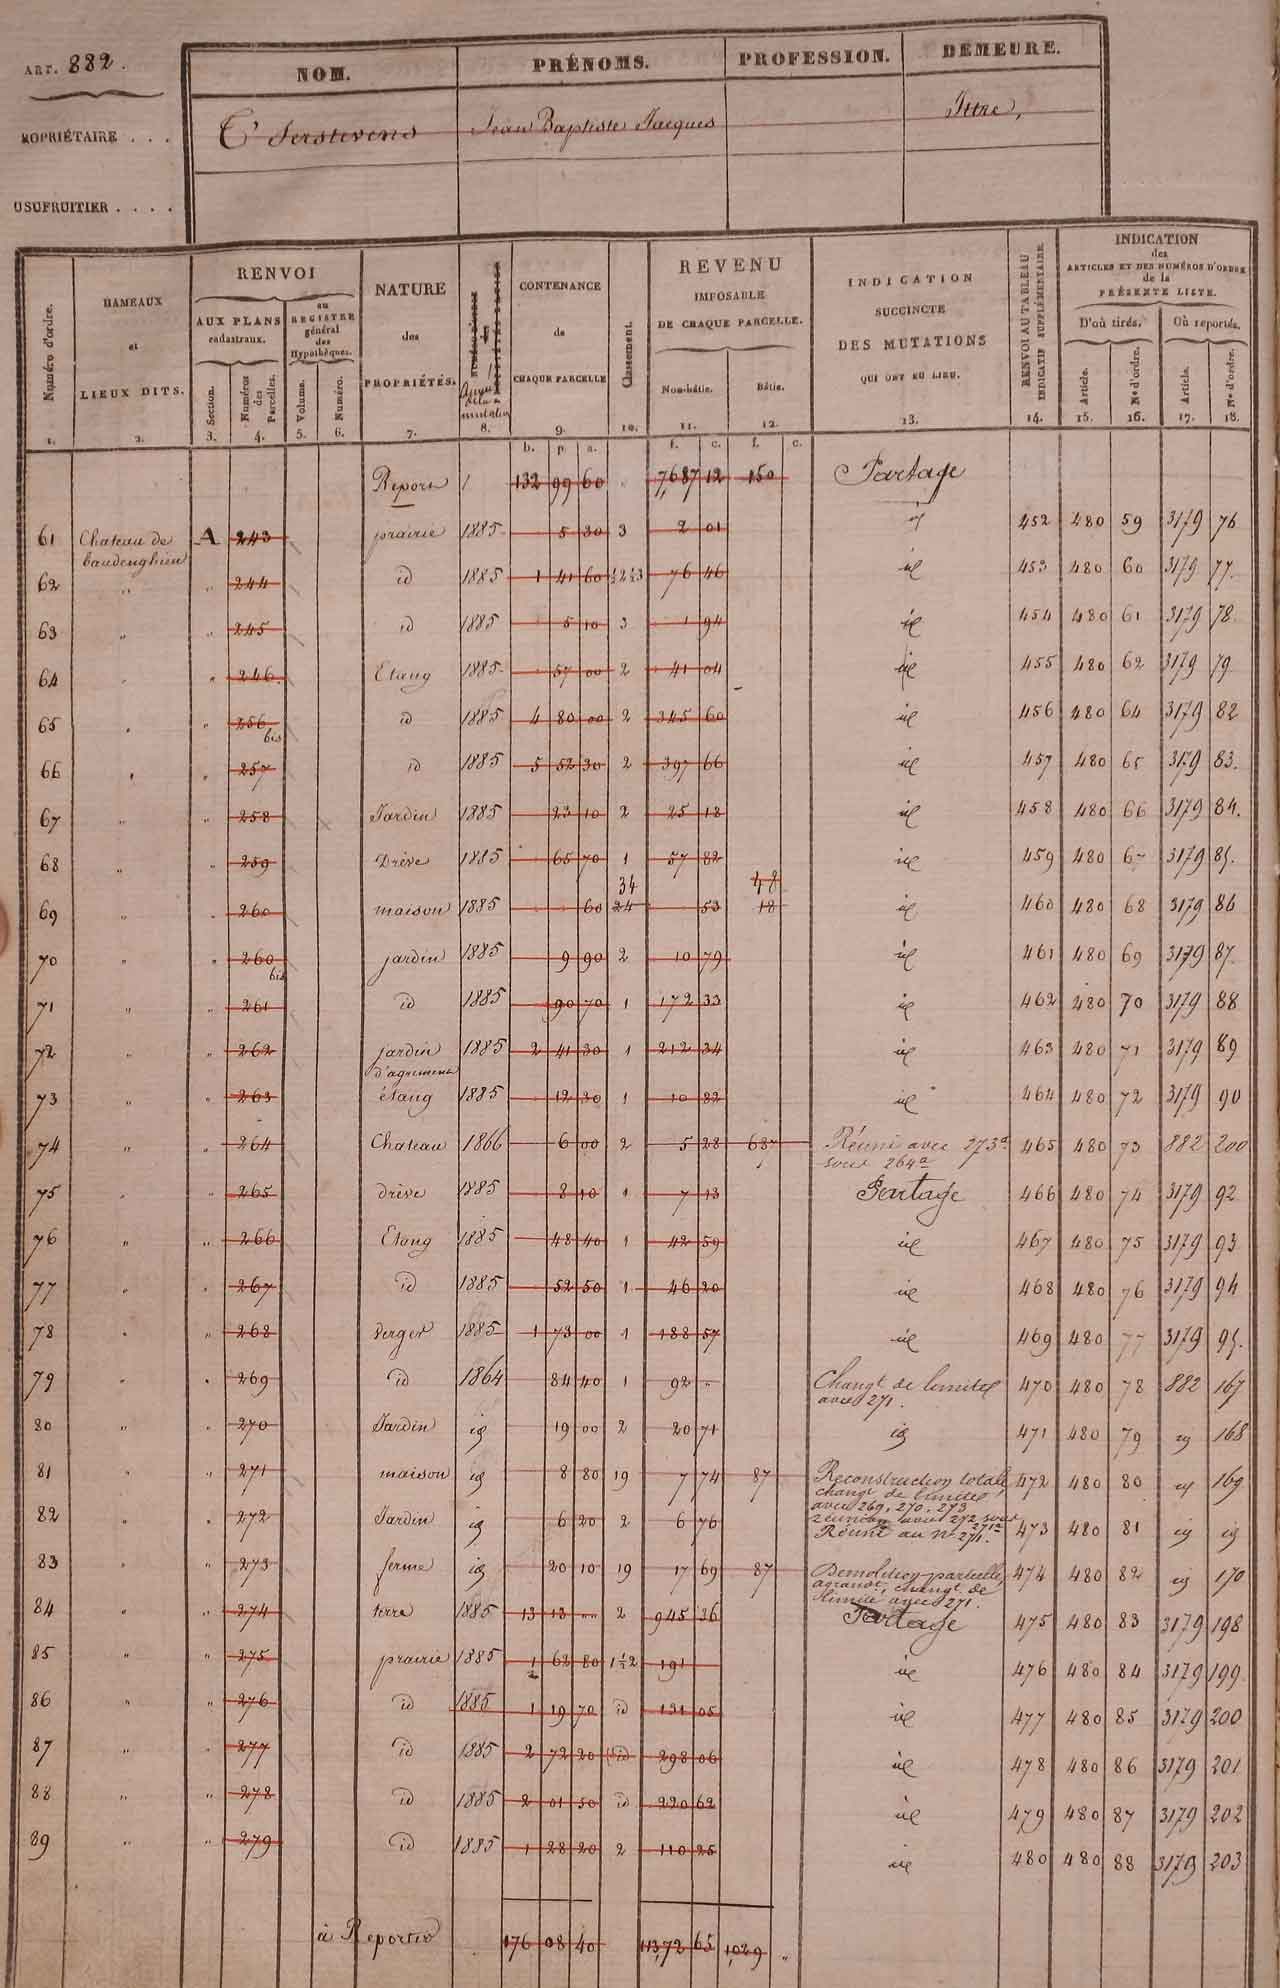 ART. 882.
NOM. PRÉNOMS. PROFESSION. DEMEURE.
ROPRIÉTAIRE . . . T' Serstevens Jean Baptiste Jacques Ittre,
USUFRUITIER . . . .
Numéro d'ordre. 1.
HAMEAUX et LIEUX DITS. 2.
RENVOI
AUX PLANS cadastraux. Section. 3. Numéros des Parcelles. 4.
au REGISTRE général des Hypothèques. Volume. 5. Numéro. 6.
NATURE des PROPRIÉTÉS. 7.
Année de la mutation 8.
CONTENANCE de CHAQUE PARCELLE 9.
Classement. 10.
REVENU IMPOSABLE DE CHAQUE PARCELLE. Non-bâtie. 11. Bâtie. 12.
INDICATION SUCCINCTE DES MUTATIONS QUI ONT EU LIEU. 13.
RENVOI AU TABLEAU INDICATIF SUPPLÉMENTAIRE. 14.
INDICATION des ARTICLES ET DES NUMÉROS D'ORDRE de la PRÉSENTE LISTE.
D'où tirés. Article. 15. No d'ordre. 16.
Où reportés. Article. 17. No d'ordre. 18.
b. p. a. f. c. f. c.
Report 132 99 60 7,687 12 150 Partage
61 Chateau de baudenghien A 243 prairie 1885 5 30 3 2 01 id 452 480 59 3179 76
62 " " 244 id 1885 1 41 60 ½2 ½3 76 46 id 453 480 60 3179 77.
63 " " 245 id 1885 5 10 3 1 94 id 454 480 61 3179 78.
64 " " 246 Etang 1885 57 00 2 41 04 id 455 480 62 3179 79.
65 " " 256 bis id 1885 4 80 00 2 345 60 id 456 480 64 3179 82
66 " " 257 id 1885 5 52 30 2 397 66 id 457 480 65 3179 83.
67 " " 258 Jardin 1885 23 10 2 25 18 id 458 480 66 3179 84.
68 " " 259 Drève 1885 65 70 1 57 82 id 459 480 67 3179 85.
34 48
69 " " 260 maison 1885 60 24 53 18 id 460 480 68 3179 86
70 " " 260 bis jardin 1885 9 90 2 10 79 id 461 480 69 3179 87.
71 " " 261 id 1885 90 70 1 172 33 id 462 480 70 3179 88
72 " " 262 jardin d'agrement 1885 2 41 30 1 212 34 id 463 480 71 3179 89
73 " " 263 étang 1885 12 30 1 10 82 id 464 480 72 3179 90
74 " " 264 Chateau 1866 6 00 2 5 28 687 Réuni avec 273a sous 264a 465 480 73 882 200
75 " " 265 drève 1885 8 10 1 7 13 Partage 466 480 74 3179 92
76 " " 266 Etang 1885 48 40 1 42 59 id 467 480 75 3179 93
77 " " 267 id 1885 52 50 1 46 20 id 468 480 76 3179 94
78 " " 268 verger 1885 1 73 00 1 188 57 id 469 480 77 3179 95.
79 " " 269 id 1864 84 40 1 92 " Changt de limites avec 271. 470 480 78 882 167
80 " " 270 Jardin id 19 00 2 20 71 id 471 480 79 id 168
81 " " 271 maison id 8 80 19 7 74 87 Reconstruction totale, changt de limites avec 269, 270, 273 réunion avec 272 sous 271a 472 480 80 id 169
82 " " 272 Jardin id 6 20 2 6 76 Réuni au No 271. 473 480 81 id id
83 " " 273 ferme id 20 10 19 17 69 87 Démolition partielle, agrandt, changt de limite avec 271. 474 480 82 id 170
84 " " 274 terre 1885 13 13 " 2 945 36 Partage 475 480 83 3179 198
85 " " 275 prairie 1885 1 62 80 1 ½ 2 191 id 476 480 84 3179 199
86 " " 276 id 1885 1 19 70 id 131 05 id 477 480 85 3179 200
87 " " 277 id 1885 2 72 20 id 298 06 id 478 480 86 3179 201
88 " " 278 id 1885 2 01 50 id 220 62 id 479 480 87 3179 202
89 " " 279 id 1885 1 28 20 2 110 25 id 480 480 88 3179 203
à Reporter 176 08 40 11372 65 1,029 "